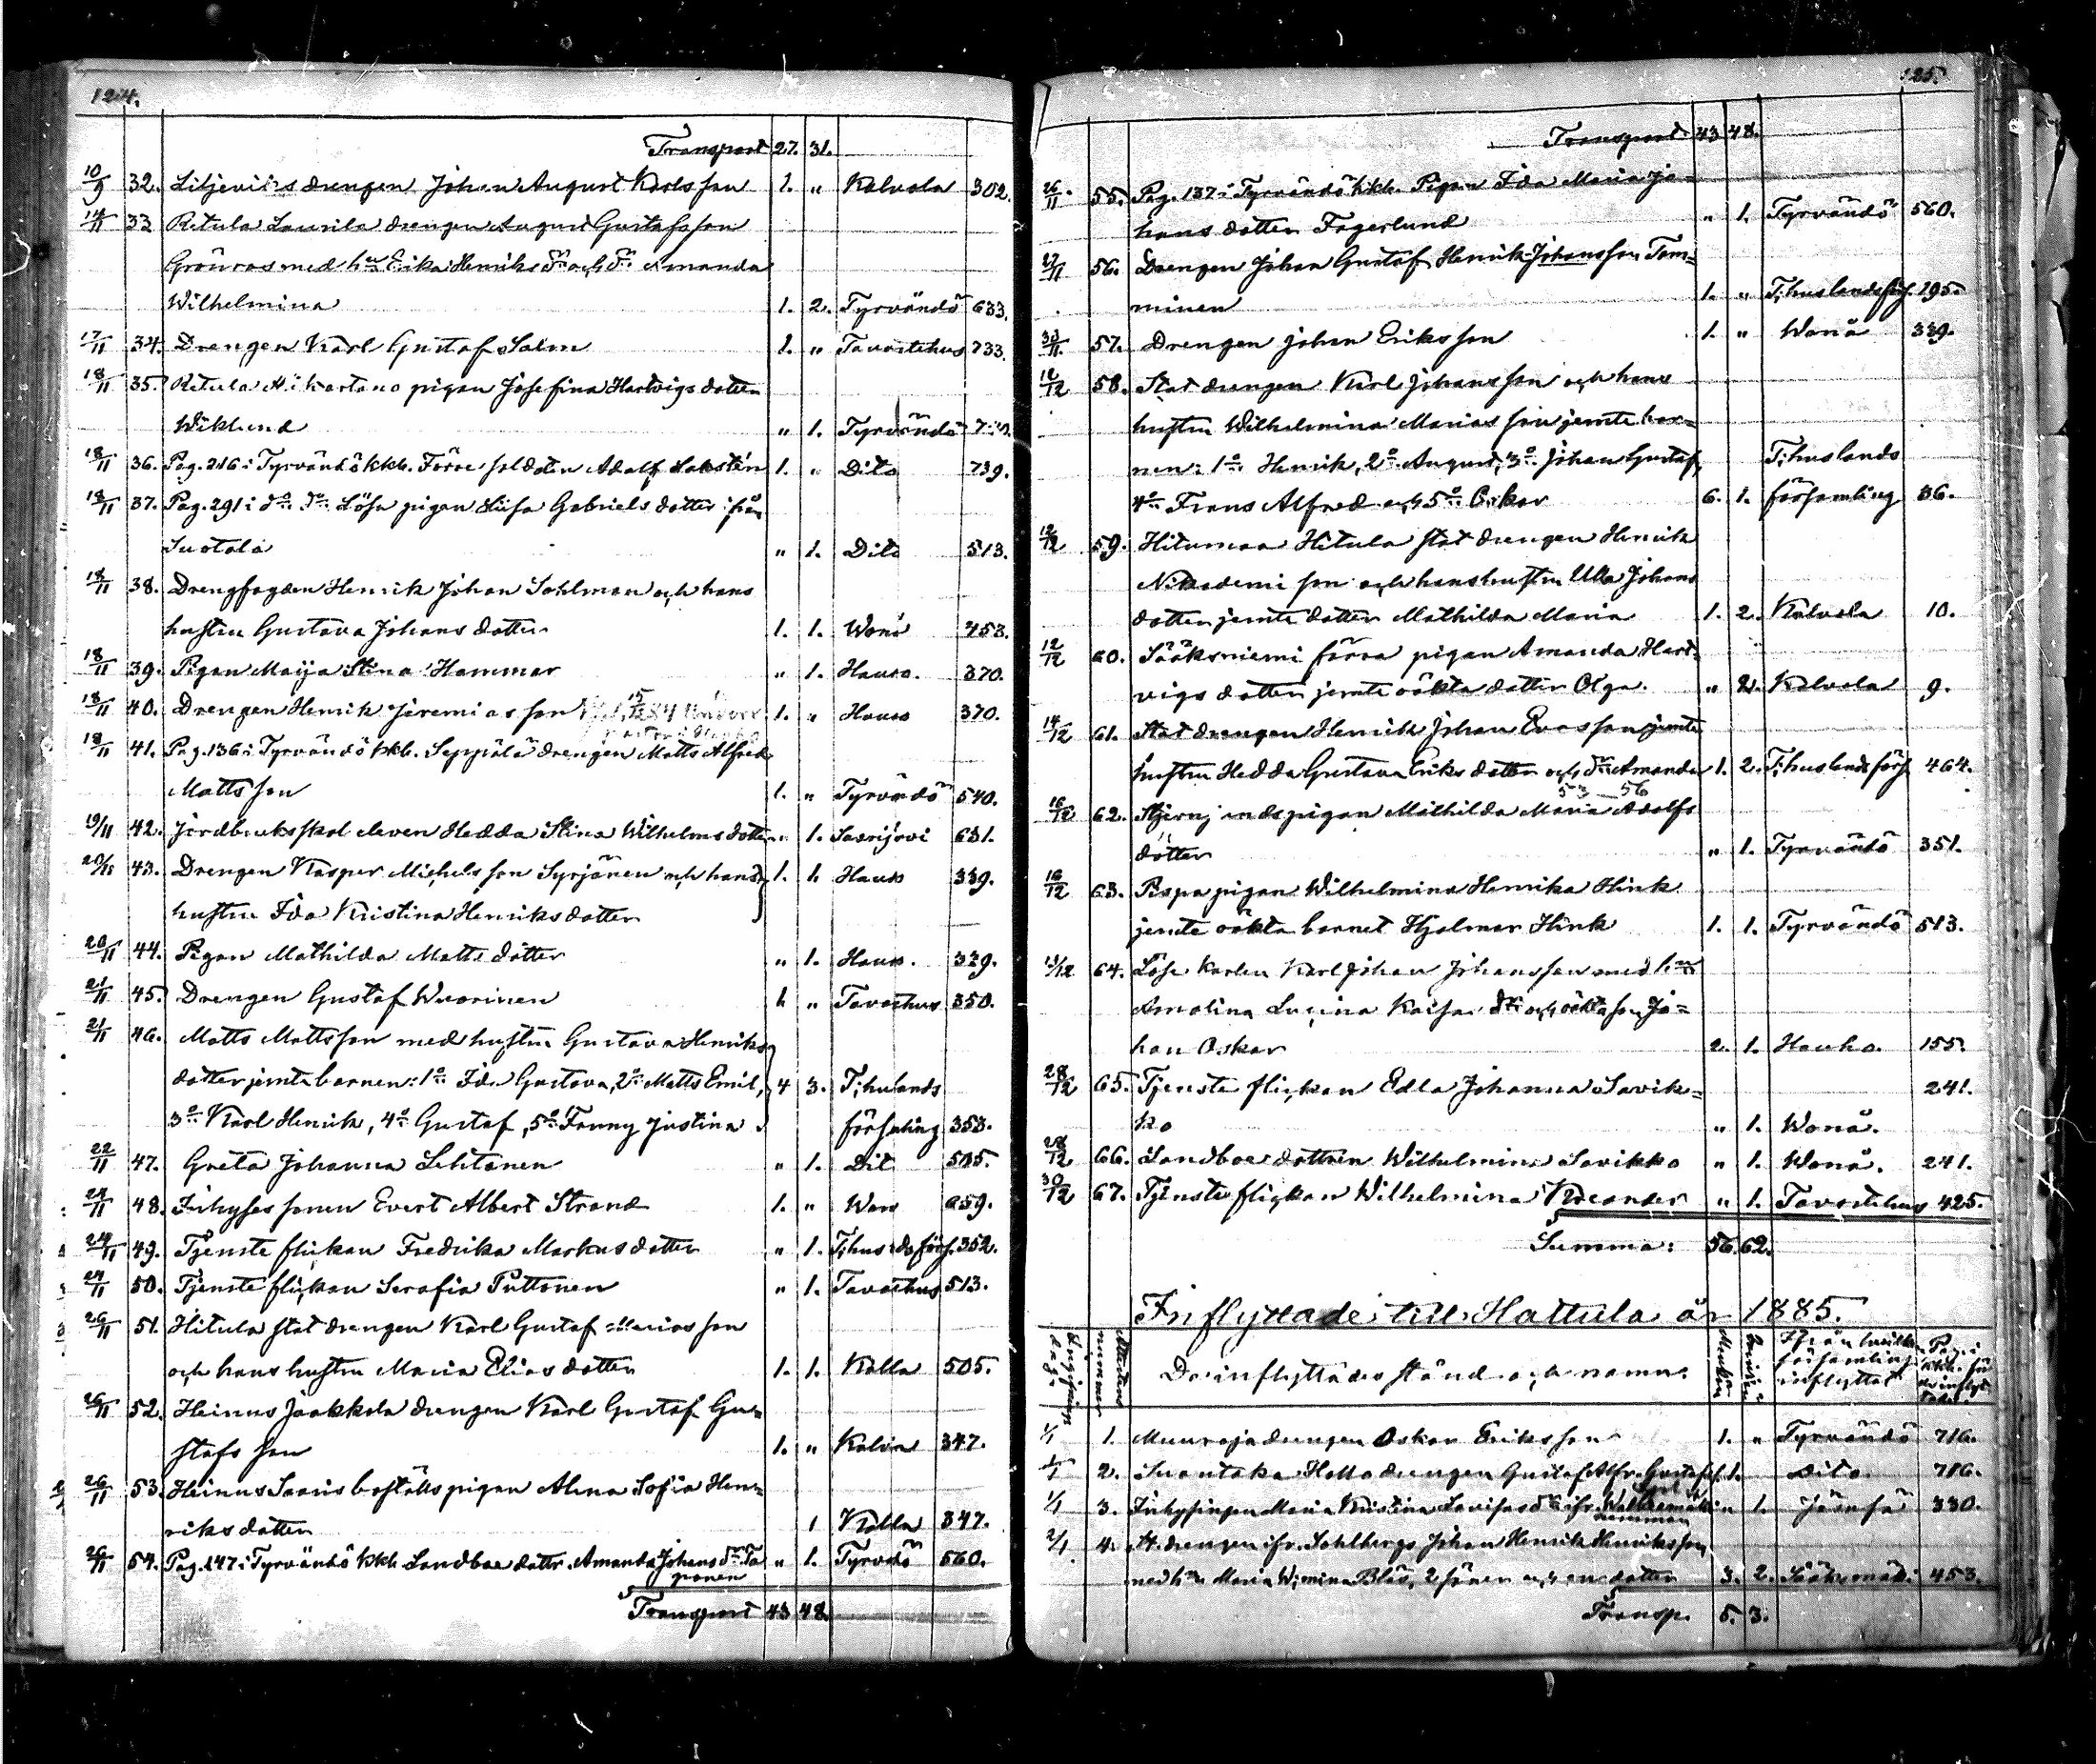 124.
Transport 27. 31.
10/9 32. Liljeviks drengen Johan August Karlsson 1. " Kalvola 302.
14/11 33 Retula Laurila drengen August Gustafsson
Grönroos med hu Erika Henriks dr och dr Amanda
Wilhelmina 1. 2. Tyrvändö 633.
17/11 34. Drengen Karl Gustaf Salm 1. " Tavastehus 733.
18/11 35. Retula Ali kartano pigan Josefina Hartvigs dotter
Wiklund " 1. Tyrvändö
18/11 36. Pag. 216 i Tyrvändö kkb. Förre soldaten Adolf 1. " Dito 739.
18/11 37. Pag. 291 i do do Lösa pigan Liisa Gabriels dotter från
Suotala " 1. Dito 513.
18/11 38. Drengfogden Henrik Johan Sahlman och hans
hustru Gustava Johans dotter 1. 1. Wånå 453.
18/11 39. Pigan Maija Stina Hammar " 1. Hauho. 370.
18/11 40. Drengen Henrik Jeremiasson 1. " Hauho 370.
18/11 41. Pag. 136 i Tyrvändö kkb. Seppälä drengen Matts Alfred
Mattsson 1. " Tyrvändö 540.
19/11 42. Jordbruksskol eleven Hedda Stina Wilhelmsdotter " 1. Saarijärvi 631.
20/11 43. Drengen Kasper Michelsson Syrjänen och hans 1. 1. Hauho 339.
hustru Ida Kristina Henriksdotter
20/11 44. Pigan Mathilda Matts dotter " 1. Hauho. 339.
21/11 45. Drengen Gustaf Wuorinen 1. " Tavastehus 350.
21/11 46. Matts Mattsson med hustru Gustava Henriks
dotter jemte barnen: 1o Ida Gustava, 2o Matts Emil, 4 3. T:huslands
3o Karl Henrik, 4o Gustaf, 5o Fanny Justina församling 353.
22/11 47. Greta Johanna Lehtonen " 1. Dito 515.
24/11 48. Inhyses sonen Evert Albert Strand 1. " Wånå 259.
24/11 49. Tjenste flickan Fredrika Markusdotter " 1. T:huslds förs. 352.
24/11 50. Tjensteflickan Serafia Puttonen " 1. Tavastehus 513.
26/11 51. Hitula stat drengen Karl Gustaf Mariasson
och hans hustru Maria Eliasdotter 1. 1. Kalvola 505.
26/11 52. Heinus Jaakkola drengen Karl Gustaf Gu=
stafsson 1. " Kalvola 347.
26/11 53. Heinus Saaris boställs pigan Alena Sofia Hen=
riksdotter 1 Kalvola 347.
26/11 54. Pag. 147 i Tyrvändö kkb. Landboe dottr. Amanda Johans dr Ta " 1. Tyrvändö 560.
ponen
Transport 43 48.
125.
Transport 43 48.
26/11 55. Pag. 137 i Tyrvändö kkb. Pigan Ida Maria Jo=
hans dotter Fagerlund " 1. Tyrvändö 560.
27/11 56. Drengen Johan Gustaf Henrik Johansson Tom=
minen 1. " T:huslandsförs. 195.
30/11 57. Drengen Johan Eriksson 1. " Wånå 339.
12/12 58. Stat drengen Karl Johansson och hans
hustru Wilhelmina Mariasson jemte bar=
nen: 1o Henrik, 2o August, 3o Johan Gustaf, T:huslands
4o Frans Alfred och 5o Oskar 6. 1. församling 36.
12/12 59. Hitumaa Hitula stat drengen Henrik
Nikodemi son och hans hustru Ulla Johans
dotter jemte dotter Mathilda Maria 1. 2. Kalvola 10.
12/12 60. Sääksniemi förra pigan Amanda Hart=
vigs dotter jemte oäkta dotter Olga. " 2. Kalvola 9.
14/12 61. Stat drengen Henrik Johan Evasson jemte
hustru Hedda Gustava Eriks dotter och dr Amanda 1. 2. T:huslandsförs. 464.
53 56
16/12 62. pigan Mathilda Maria Adolfs
dotter " 1. Tyrvändö 351.
16/12 63. Pispa pigan Wilhelmina Henrika Hink
jemte oäkta barnet Hjalmar Hink 1. 1. Tyrvändö 513.
64. Löse karlen Karl Johan Johansson med hu
Amalina Lucina Kaisas dr och oäkta son Jo=
han Oskar 2. 1. Hauho. 155.
28/12 65. Tjenste flickan Edla Johanna Savik= 241.
ko " 1. Wånå.
28/12 66. Landboe dottren Wilhelmina Savikko " 1. Wånå. 241.
30/12 67. Tjensteflickan Wilhelmina " 1. Tavastehus 425.
Summa: 56. 62.
Inflyttade till Hattula år 1885.
De inflyttades stånd och namn. Från hvilken församling inflyttat
1/1 1. Muuroja drengen Oskar Eriksson 1. " Tyrvändö 716.
1/1 2. Suontaka Hollo drengen Gustaf Alfr. Gustafss. 1. Dito. 716.
1/1 3. Inhysingen Maria Kristina Lovisas dr ifr. 1. 330.
2/1 4. St. drengen ifr. Sahlbergs Johan Henrik Henriksson
med hu Maria W:mina Blås, 2 söner och en dotter 3. 2. Sääxmäki 453.
Transp. 5. 3.